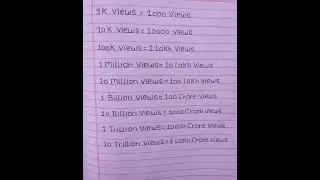 1K Views = 1000 Views
10K Views = 10000 Views
100K Views = 1 Lakh Views
1 Million Views = 10 Lakh Views
10 Million Views = 100 Lakh Views
1 Billion Views = 100 Crore Views
10 Billion Views = 1000 Crore Views
1 Trillion Views = 10000 Crore Views
10 Trillion Views = 1 Lakh Crore Views